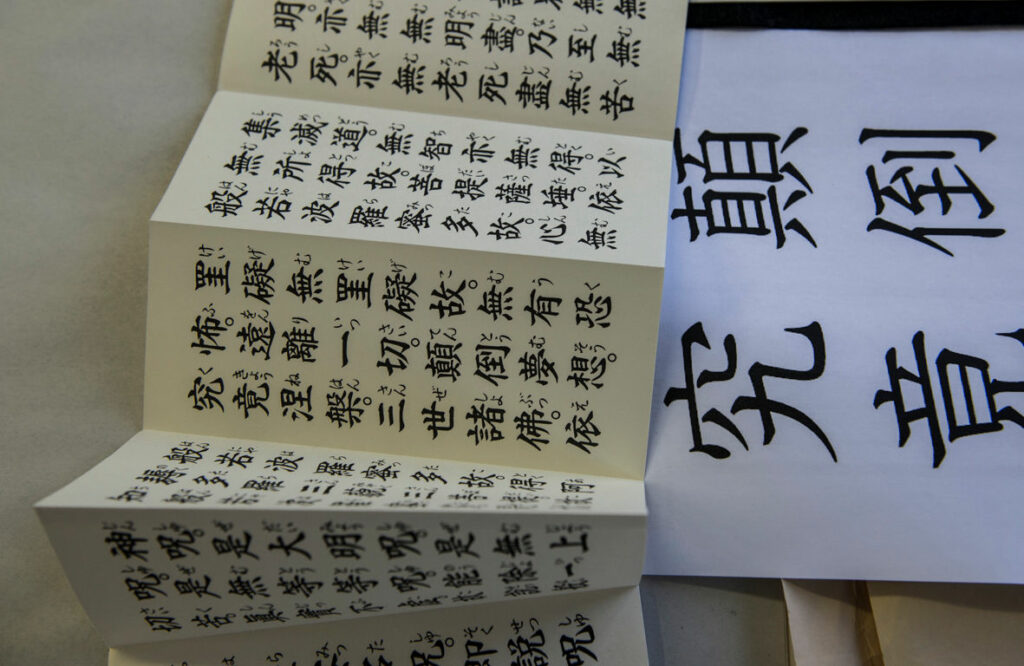 明。亦無無明盡。乃至無
老死。亦無老死盡。無苦
集滅道。無智亦無得。以
無所得故。菩提薩埵。依
般若波羅蜜多故。心無
罣礙無罣礙故。無有恐
怖。遠離一切顛倒夢想。
究竟涅槃。三世諸佛。依
般若波羅蜜多故。得阿
耨多羅三藐三菩提。
神呪。是大明呪。是無上
呪。是無等等呪。能除一
切苦。
呪。即說呪
顛倒
究竟